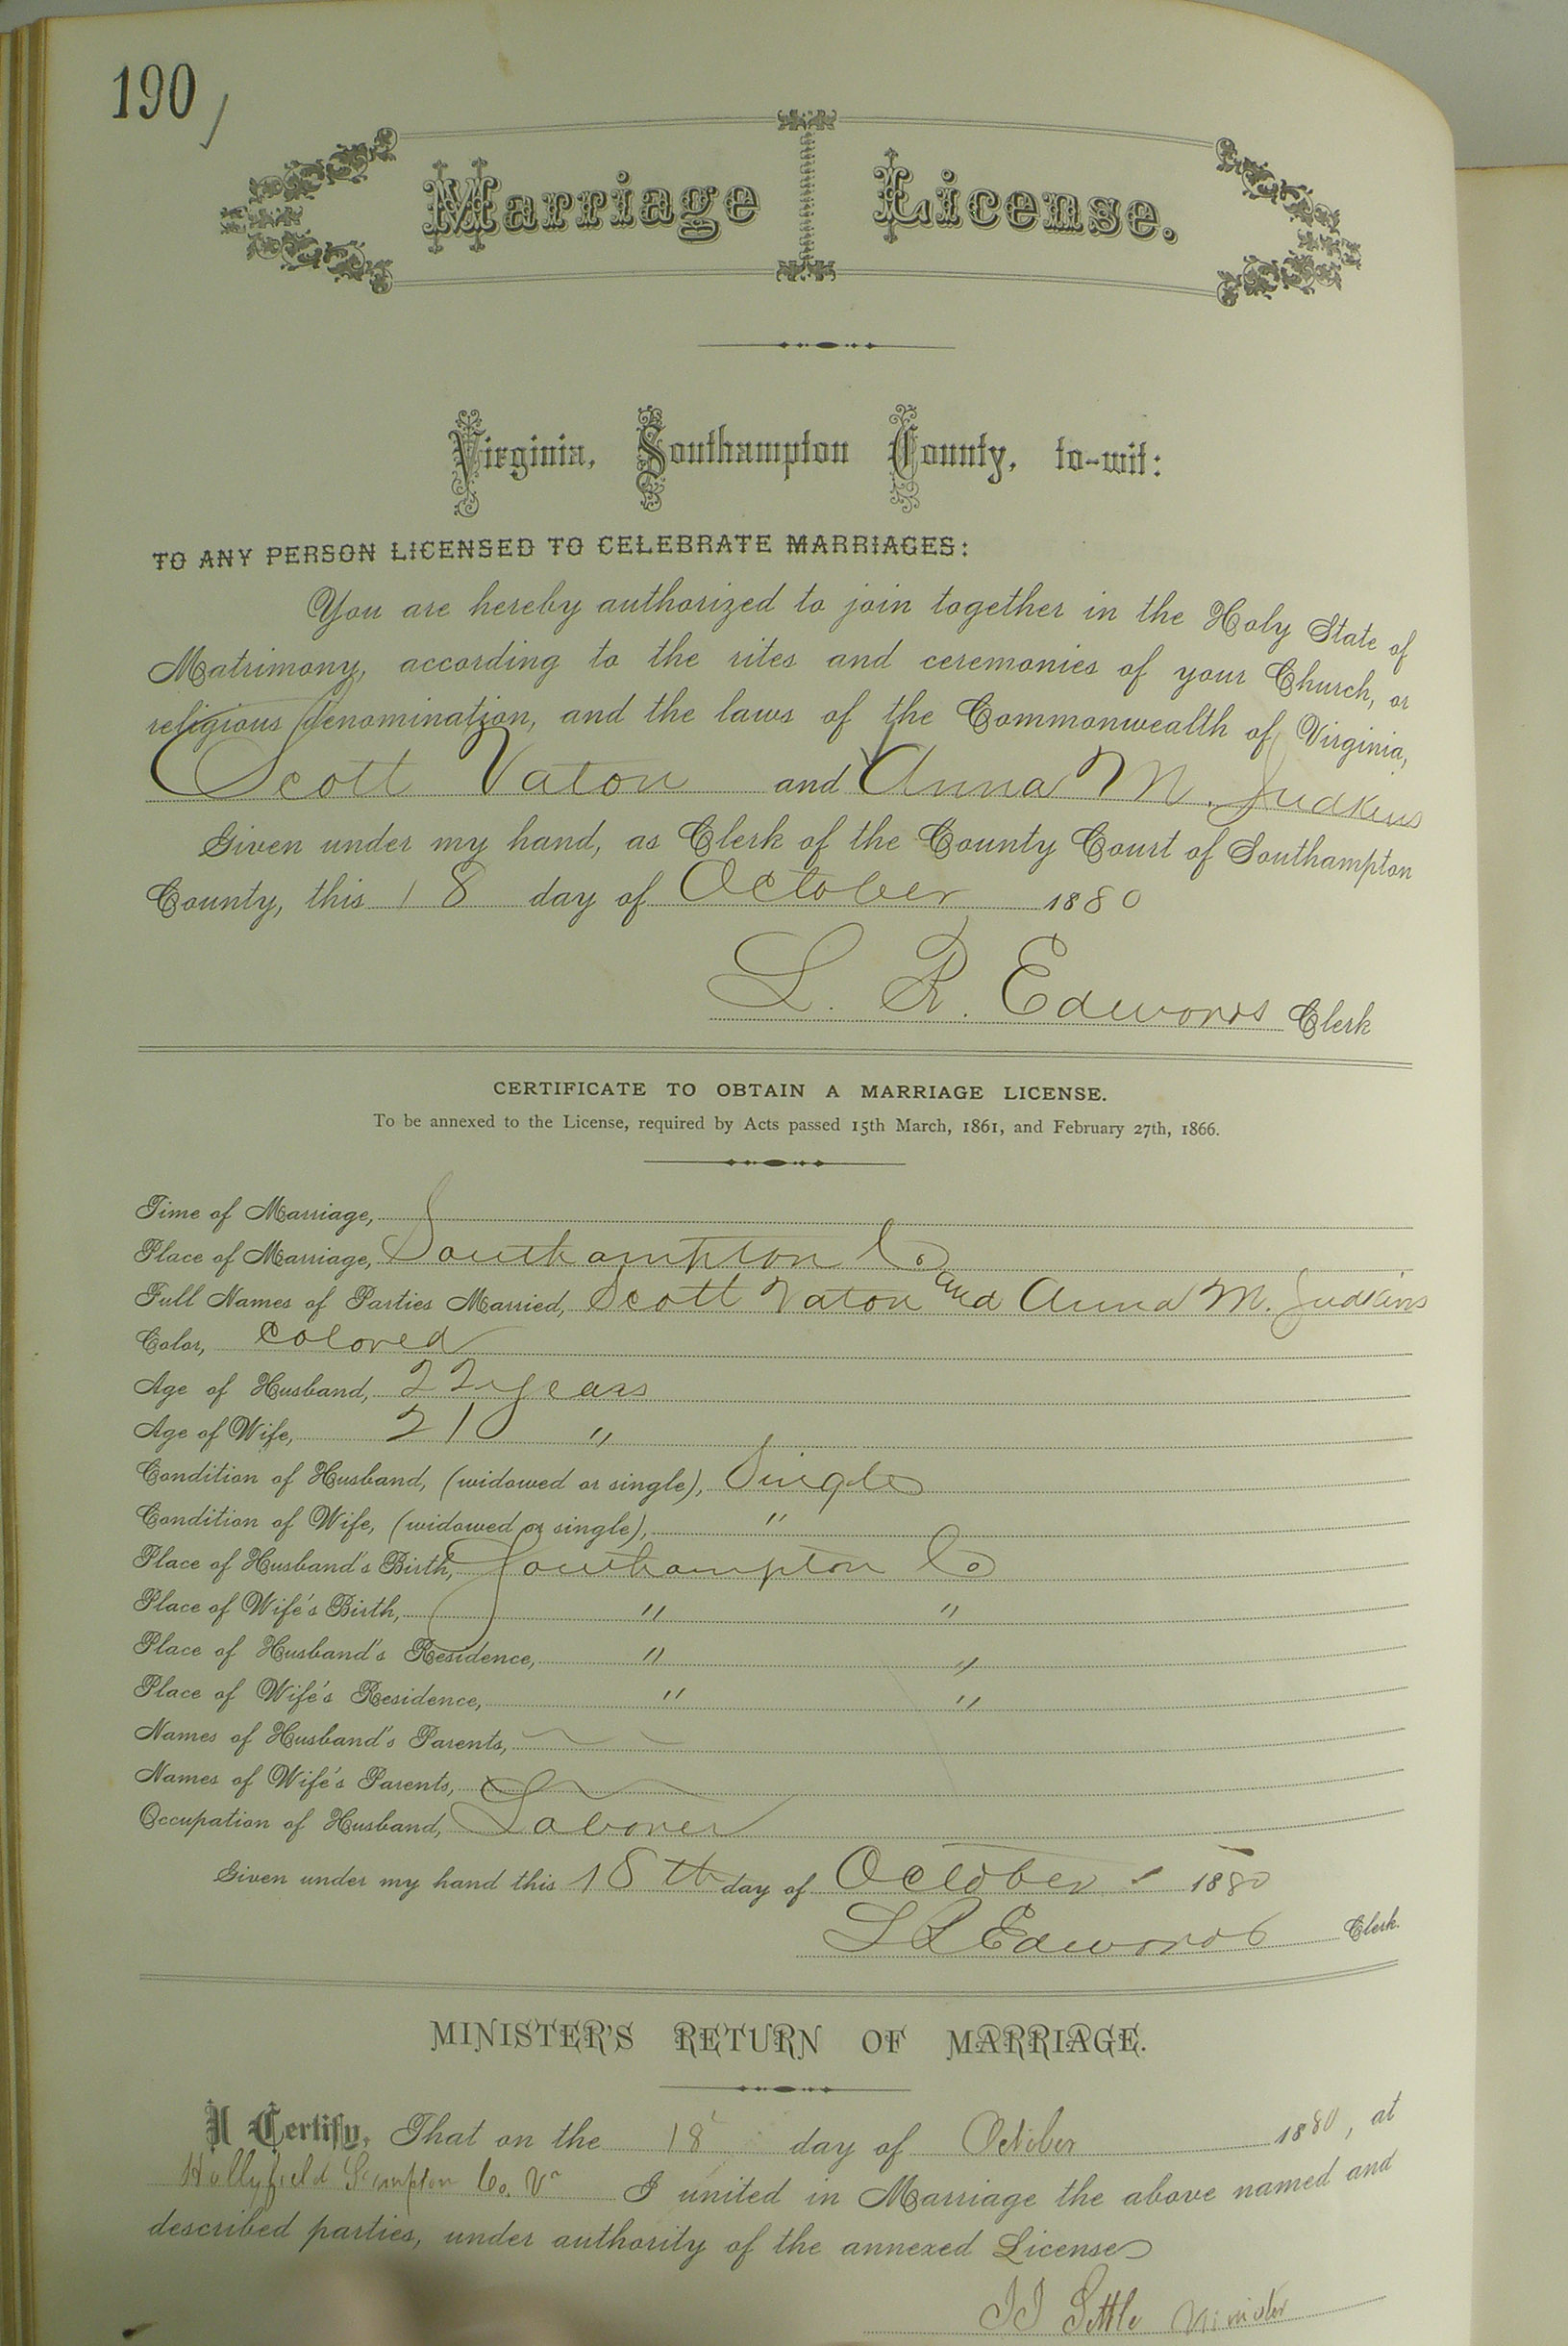 190
Marriage License.
Virginia, Southampton County, to-wit:
TO ANY PERSON LICENSED TO CELEBRATE MARRIAGES:
You are hereby authorized to join together in the Holy State of
Matrimony, according to the rites and ceremonies of your Church, or
religious denomination, and the laws of the Commonwealth of Virginia,
Scott Vaton and Anna M. Judkins
Given under my hand, as Clerk of the County Court of Southampton
County, this 18 day of October 1880
L. R. Edwards Clerk
CERTIFICATE TO OBTAIN A MARRIAGE LICENSE.
To be annexed to the License, required by Acts passed 15th March, 1861, and February 27th, 1866.
Time of Marriage,
Place of Marriage, Southampton Co
Full Names of Parties Married, Scott Vaton and Anna M. Judkins
Color, colored
Age of Husband, 22 years
Age of Wife, 21 "
Condition of Husband, (widowed or single), Single
Condition of Wife, (widowed or single), "
Place of Husband's Birth, Southampton Co
Place of Wife's Birth, " "
Place of Husband's Residence, " "
Place of Wife's Residence, " "
Names of Husband's Parents,
Names of Wife's Parents,
Occupation of Husband, Laborer
Given under my hand this 18th day of October 1880
L R Edwards Clerk.
MINISTER'S RETURN OF MARRIAGE.
I Certify, That on the 18 day of October 1880, at
Hollyfield Co. Va I united in Marriage the above named and
described parties, under authority of the annexed License
JJ Settle Minister